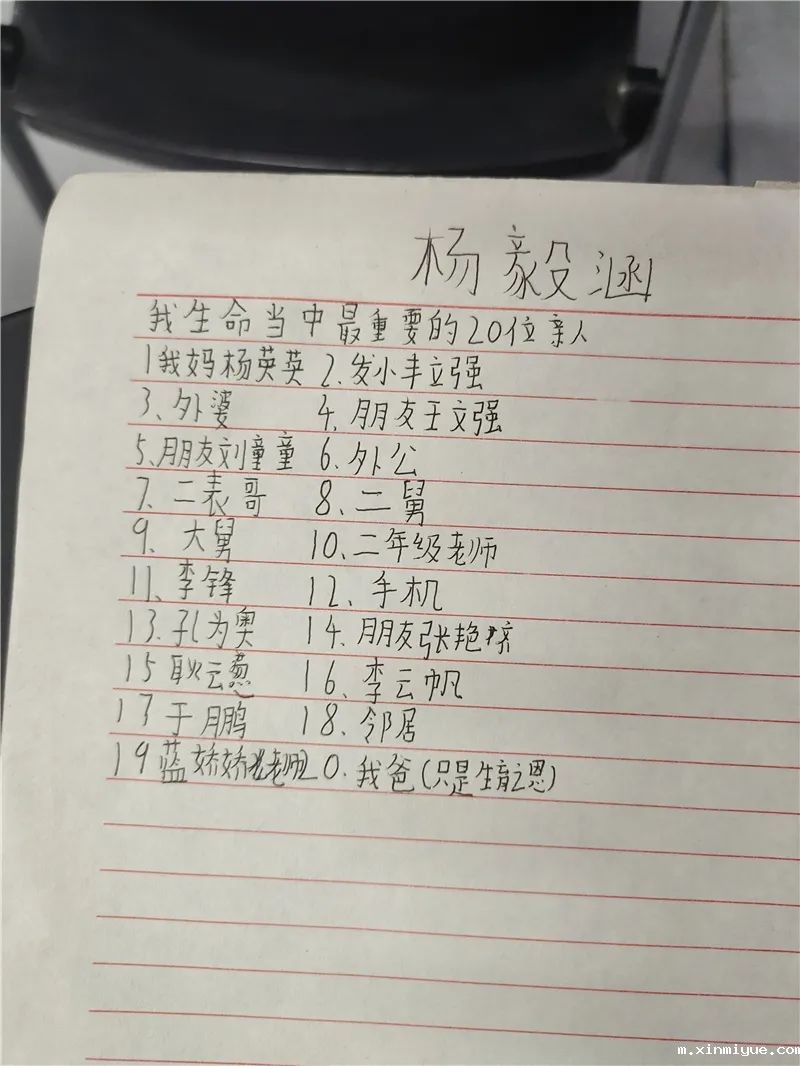 杨毅涵
我生命当中最重要的20位亲人
1我妈杨英英 2.发小丰立强
3、外婆 4.朋友王文强
5、朋友刘童童 6.外公
7.二表哥 8.二舅
9、大舅 10.二年级老师
11、李锋 12、手机
13.孔为奥 14.朋友张艳
15耿云葱 16.李云帆
17于鹏 18.邻居
19蓝娇娇老师20.我爸(只是生育之恩)
m.xinmiyue.com